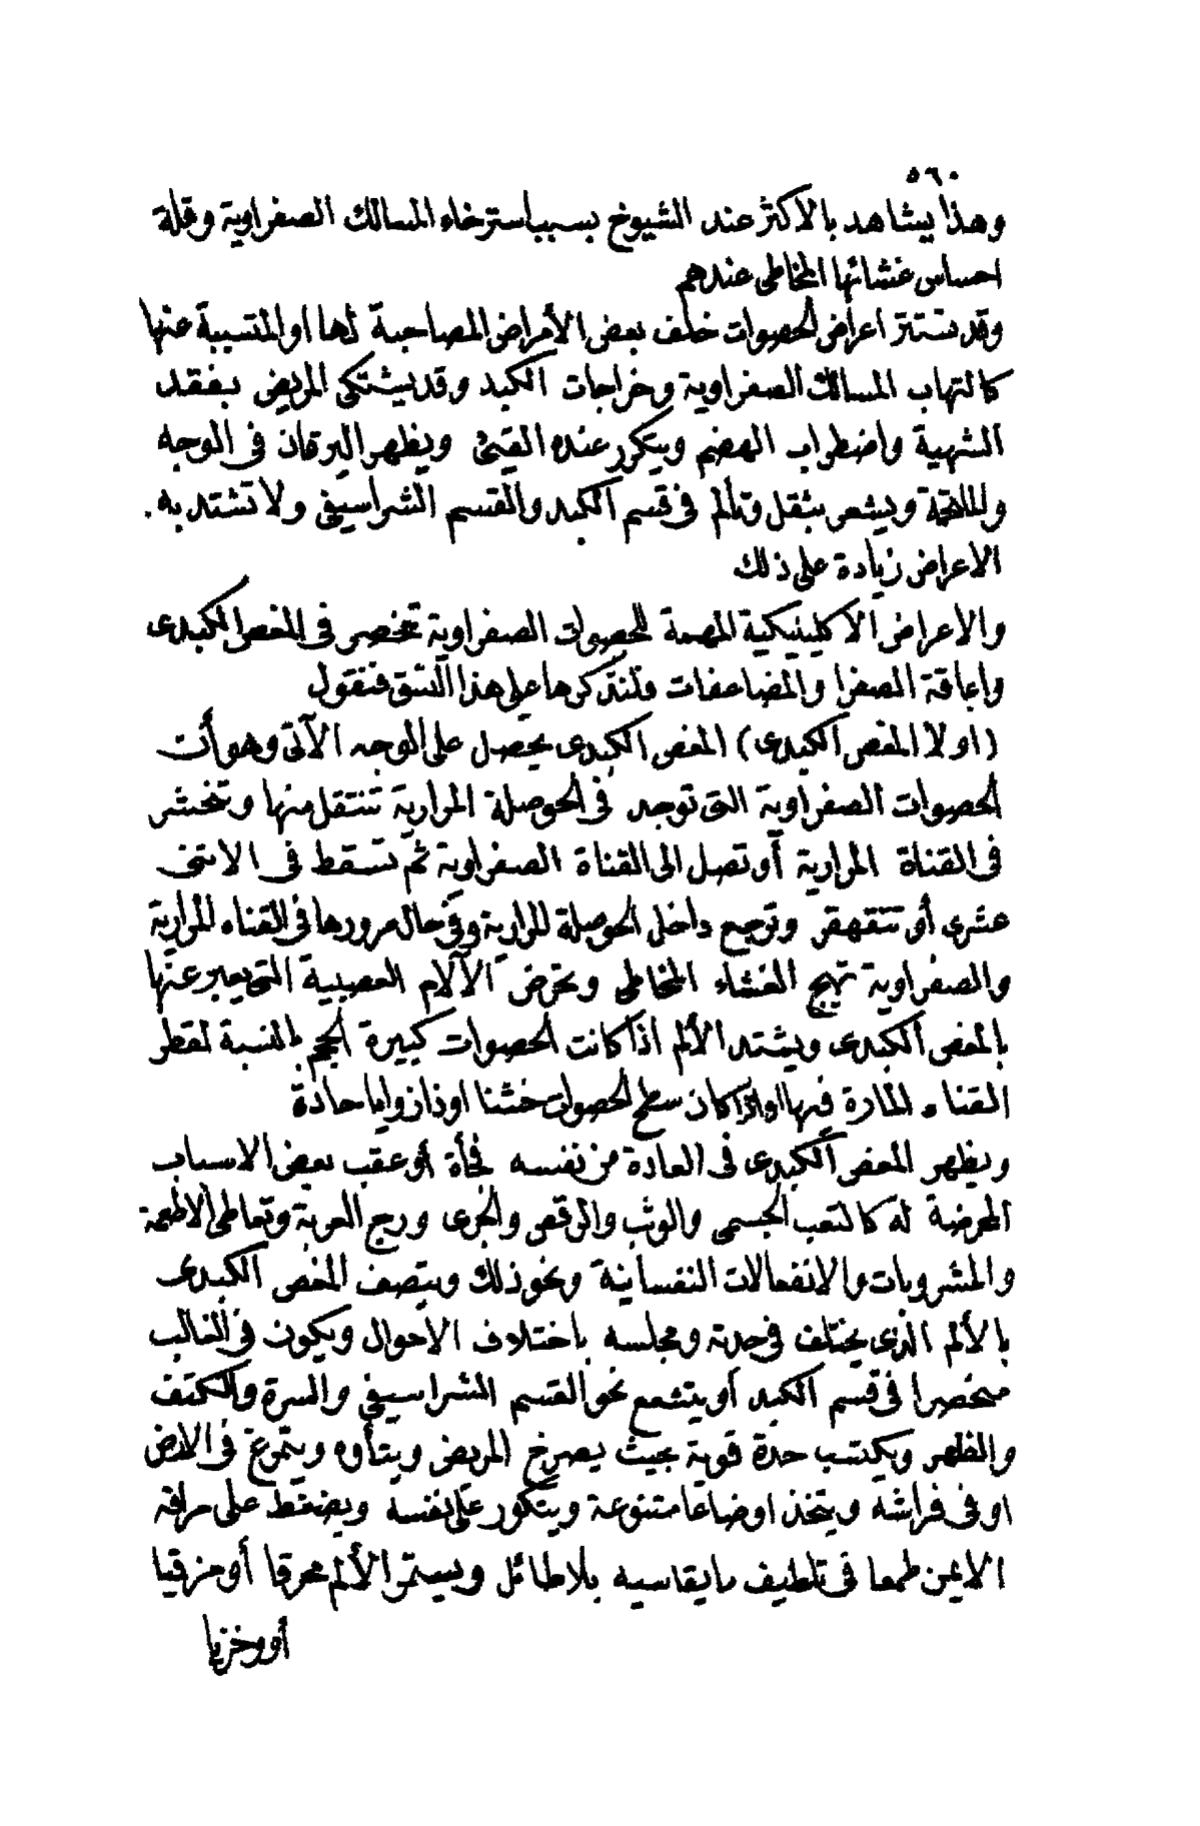 ٥٦٠
وهذا يشاهد بالاكثر عند الشيوخ بسبب استرخاء المسالك الصفراوية وقلة
احساس غشائها المخاطى عندهم
وقد تستتر اعراض الحصوات خلف بعض الأمراض المصاحبة لها او المتسببة عنها
كالتهاب المسالك الصفراوية وخراجات الكبد وقد يشتكى المريض بفقد
الشهية واضطراب الهضم ويتكرر عنده القيئ ويظهر اليرقان فى الوجه
والملتحمة ويشعر بثقل وتألم فى قسم الكبد والقسم الشراسيفى ولا تشتد به
الاعراض زيادة على ذلك
والاعراض الاكلينيكية المهمة للحصوات الصفراوية تنحصر فى المغص الكبدى
واعاقة الصفرا والمضاعفات ولنذكرها على هذا النسق فنقول
(اولا المغص الكبدى) المغص الكبدى يحصل على الوجه الآتى وهو أن
الحصوات الصفراوية التى توجد فى الحوصلة المرارية تنتقل منها وتنحشر
فى القناة المرارية أو تصل الى القناة الصفراوية ثم تسقط فى الاثنى
عشرى أو تتقهقر وترجع داخل الحوصلة المرارية وفى حال مرورها فى القناه المرارية
والصفراوية تهيج الغشاء المخاطى وتحرض الآلام العصبية التى يعبر عنها
بالمغص الكبدى ويشتد الألم اذا كانت الحصوات كبيرة الحجم بالنسبة لقطر
القناه المارة فيها او اذا كان سطح الحصوات خشنا او ذا زوايا حادة
ويظهر المغص الكبدى فى العادة من نفسه فجأة أو عقب بعض الاسباب
المحرضة له كالتعب الجسمى والوثب والرقص والجرى ورج العربة وتعاطى الاطعمة
والمشروبات والانفعالات النفسانية ونحو ذلك ويتصف المغص الكبدى
بالألم الذى يختلف فى حدته ومجلسه باختلاف الاحوال ويكون فى الغالب
منحصرا فى قسم الكبد أو يتشعع نحو القسم الشراسيفى والسرة والكتف
والظهر ويكتسب حدة قوية بحيث يصرخ المريض ويتأوه ويتمرغ فى الارض
او فى فراشه ويتخذ اوضاعا متنوعة ويتكور على نفسه ويضغط على مراقه
الايمن طمعا فى تلطيف ما يقاسيه بلا طائل ويستمر الألم محرقا أو مزقيا
أو وخزيا